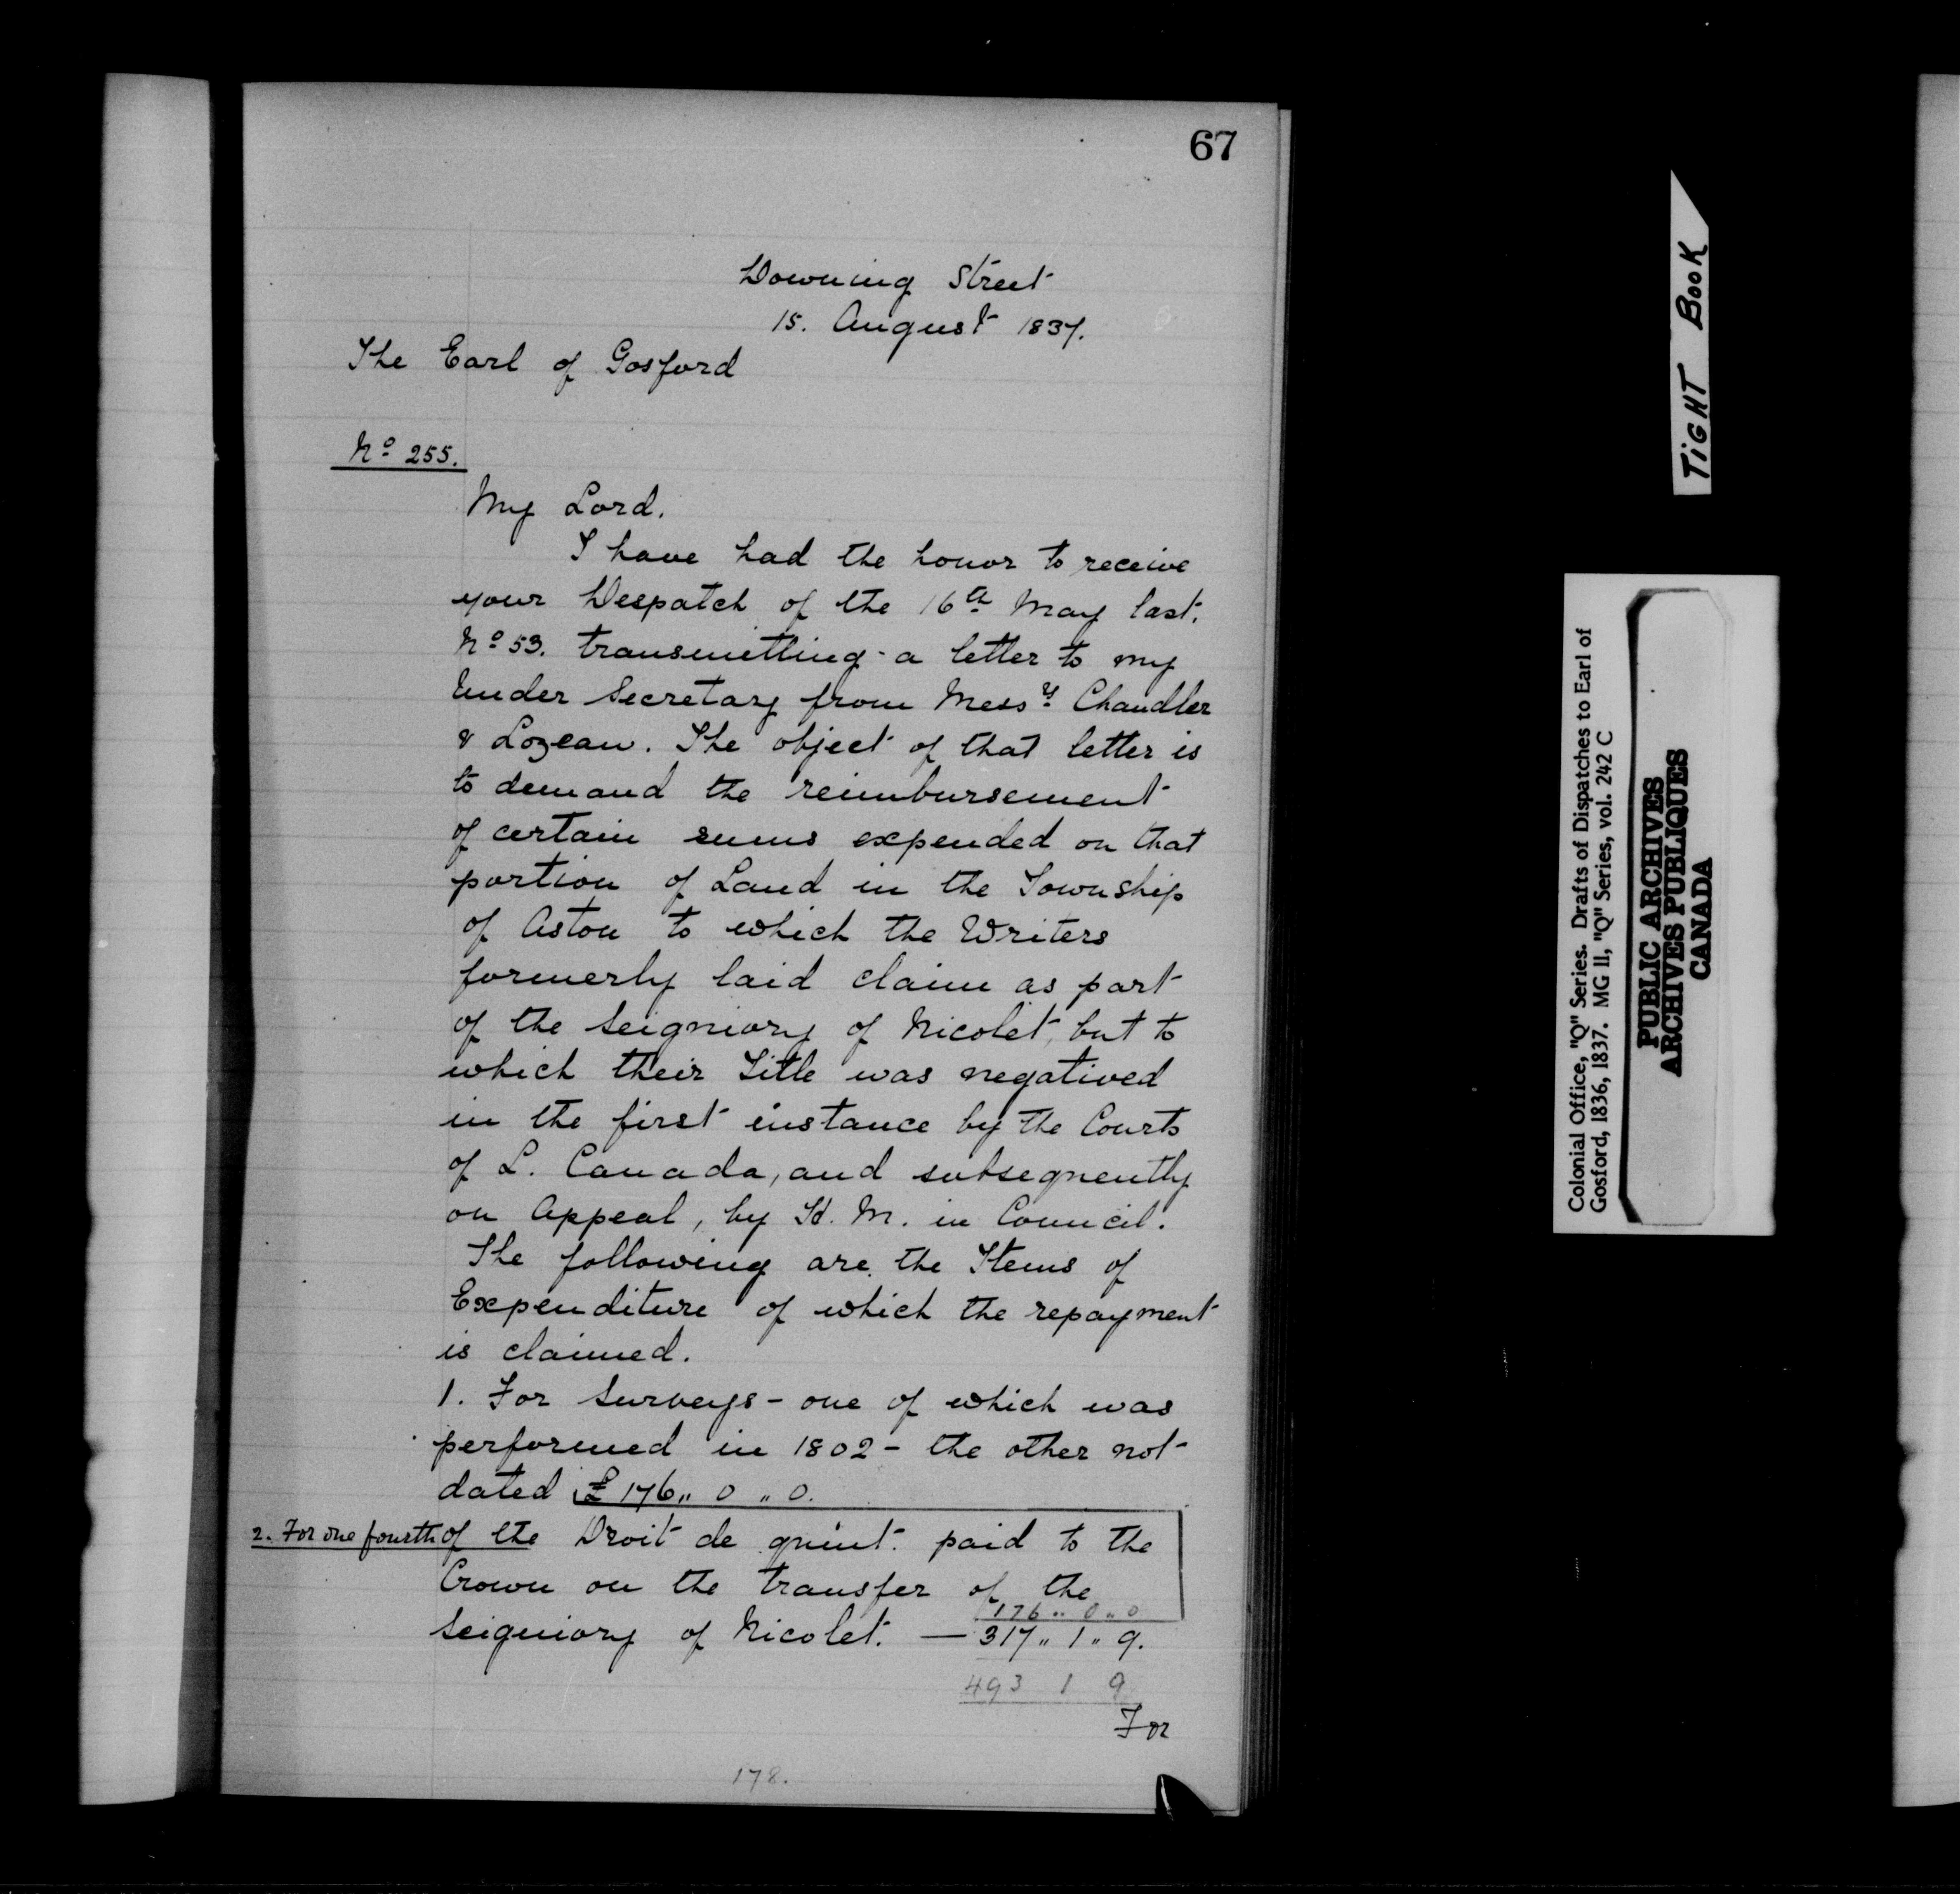 67
Downing Street
15. August 1837.
The Earl of Gosford
No 255.
My Lord.
I have had the honor to receive
your Despatch of the 16th May last.
No 53. transmitting a letter to my
Under Secretary from Messrs Chandler
& Lozeau. The object of that letter is
to demand the reimbursement
of certain sums expended on that
portion of Land in the Township
of Aston to which the Writers
formerly laid claim as part
of the Seigniory of Nicolet, but to
which their Title was negatived
in the first instance by the Courts
of L. Canada, and subsequently
on Appeal, by H. M. in Council.
The following are the Items of
Expenditure of which the repayment
is claimed.
1. For Surveys - one of which was
performed in 1802 - the other not
dated £176 " 0 " 0.
2. For one fourth of the Droit de quint. paid to the
Crown on the transfer of the
176 " 0 " 0
Seigniory of Nicolet. — 317 " 1 " 9.
493 1 9
For
178.
TiGHT BOOK
Colonial Office, "Q" Series. Drafts of Dispatches to Earl of
Gosford, 1836, 1837. MG II, "Q" Series, vol. 242 C
PUBLIC ARCHIVES
ARCHIVES PUBLIQUES
CANADA